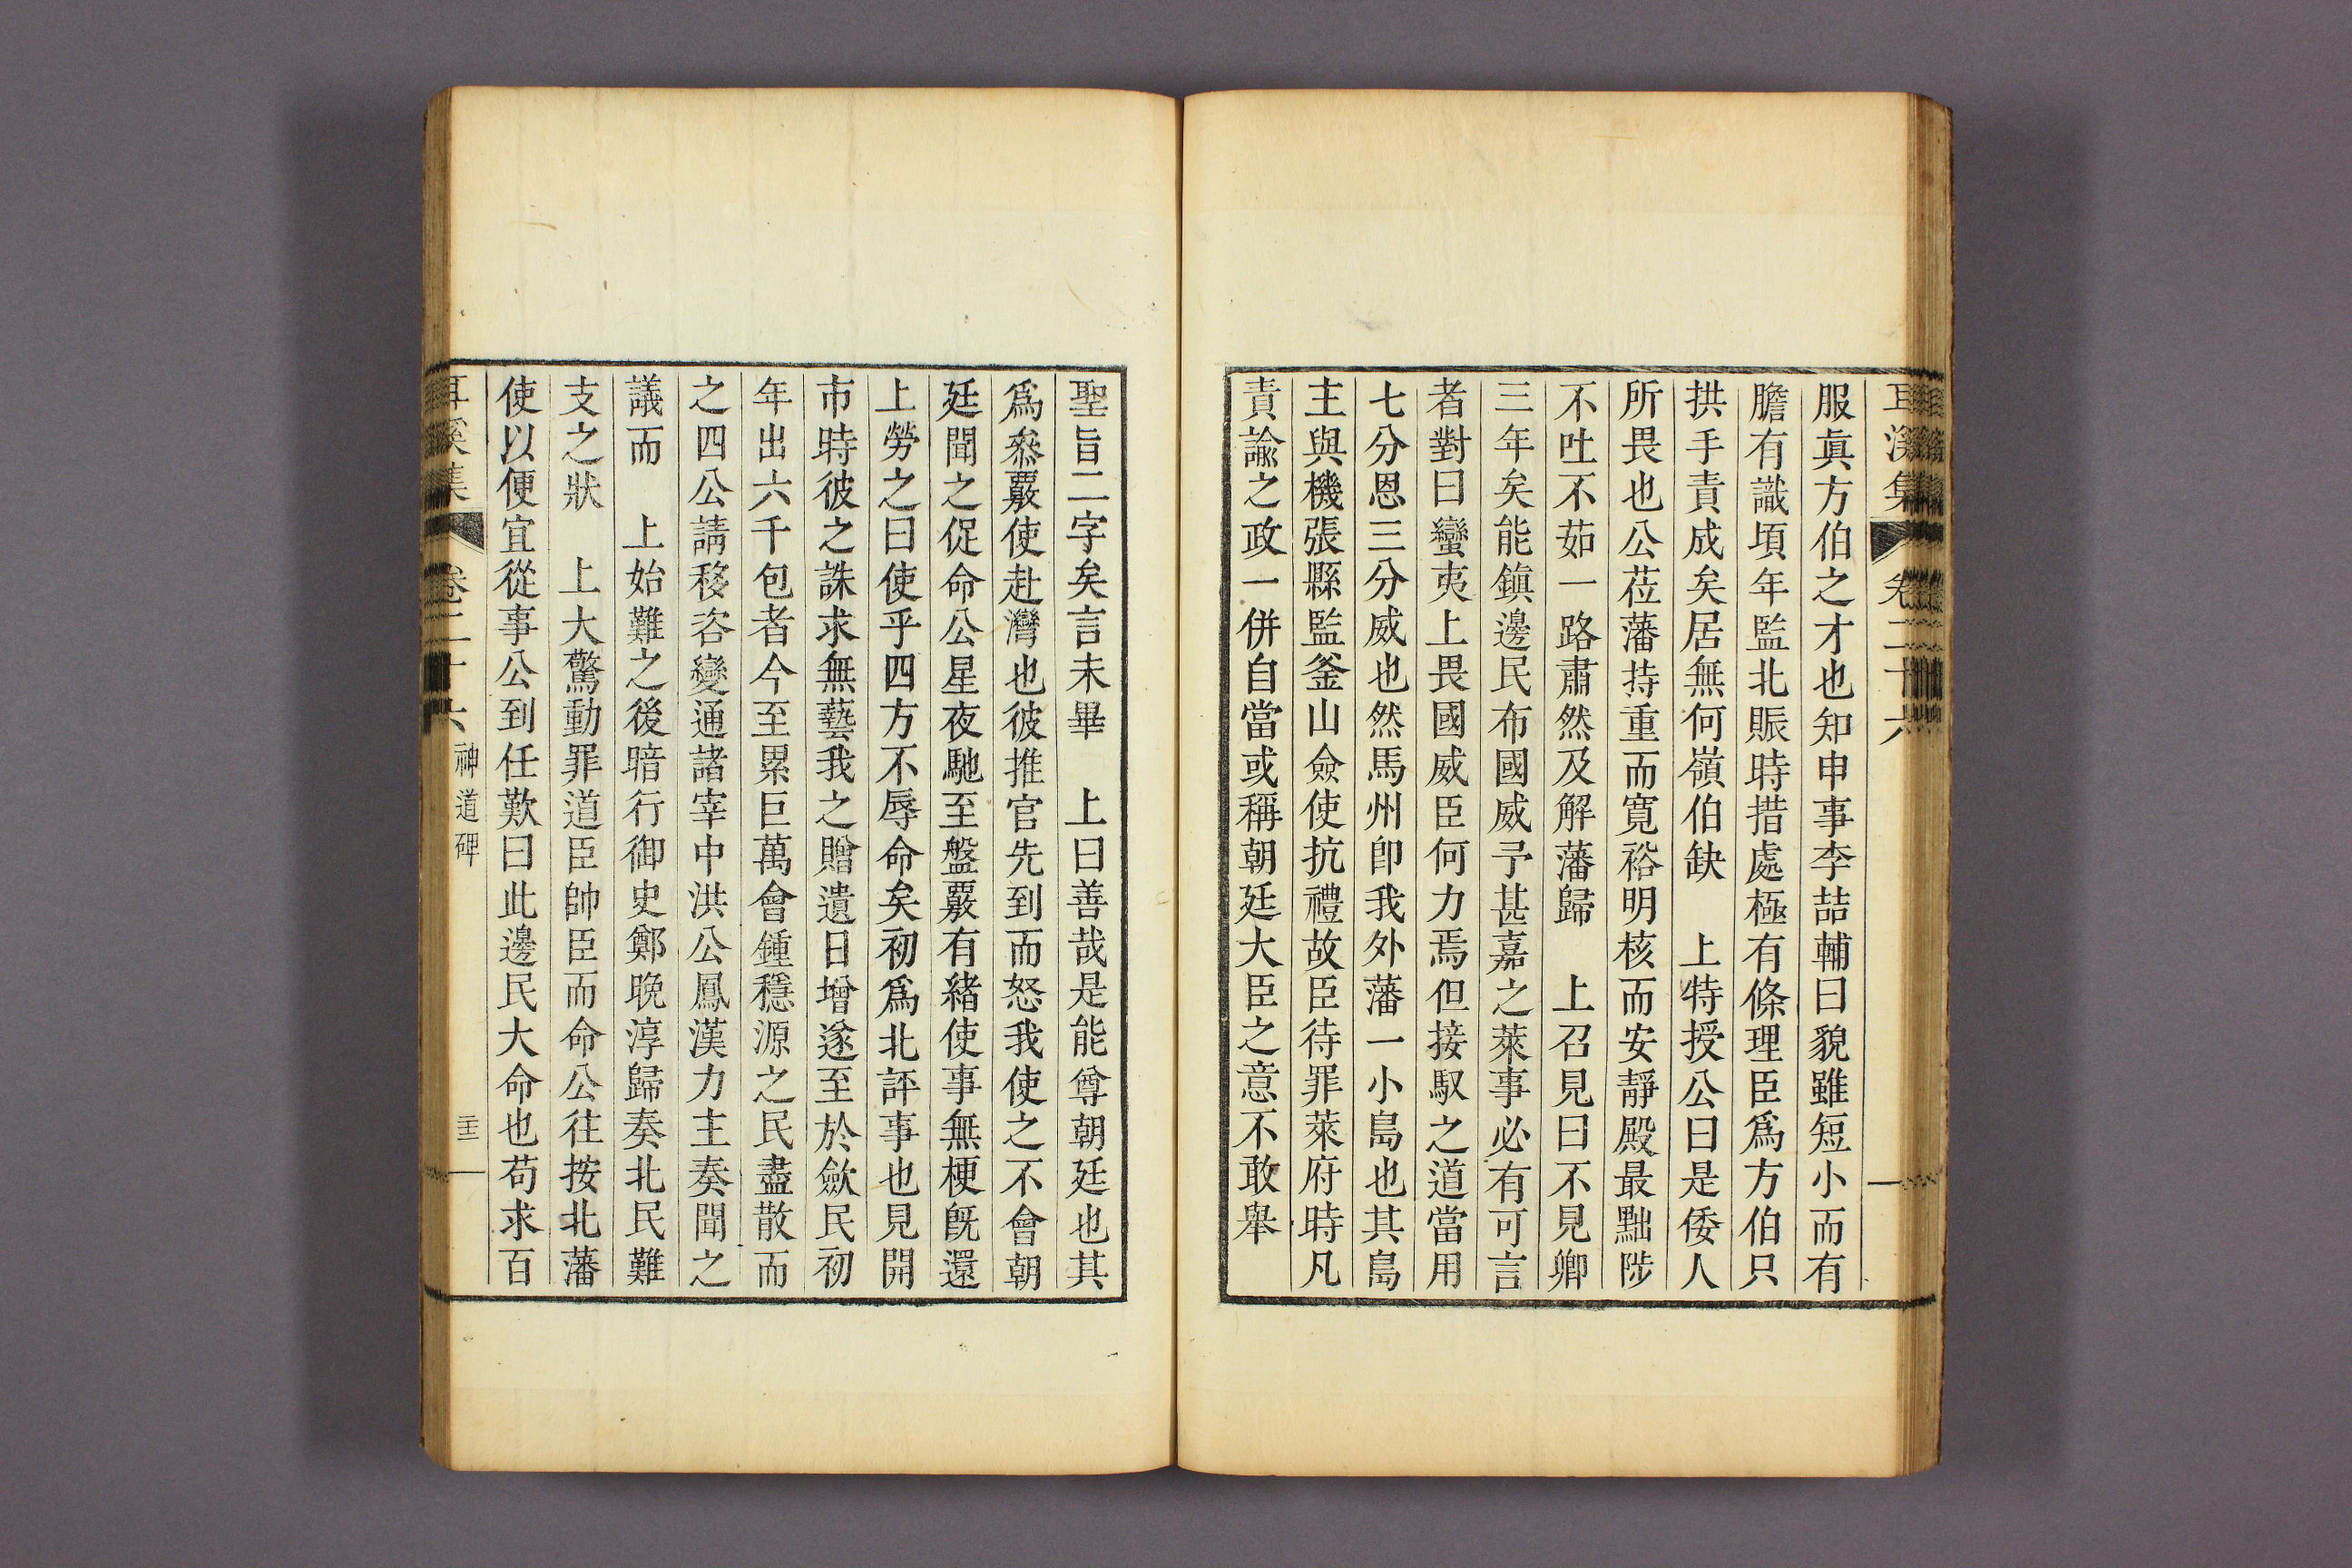 耳溪集 卷二十六
服眞方伯之才也知申事李喆輔曰貌雖短小而有
膽有識頃年監北賑時措處極有條理臣爲方伯只
拱手責成矣居無何嶺伯缺 上特授公曰是倭人
所畏也公莅藩持重而寬裕明核而安靜殿最黜陟
不吐不茹一路肅然及解藩歸 上召見曰不見卿
三年矣能鎭邊民布國威予甚嘉之萊事必有可言
者對曰蠻夷上畏國威臣何力焉但接馭之道當用
七分恩三分威也然馬州卽我外藩一小島也其島
主與機張縣監釜山僉使抗禮故臣待罪萊府時凡
責諭之政一併自當或稱朝廷大臣之意不敢舉
聖旨二字矣言未畢 上曰善哉是能尊朝廷也其
爲叅覈使赴灣也彼推官先到而怒我使之不會朝
廷聞之促命公星夜馳至盤覈有緖使事無梗旣還
上勞之曰使乎四方不辱命矣初爲北評事也見開
市時彼之誅求無藝我之贈遺日增遂至於斂民初
年出六千包者今至累巨萬會鍾穩源之民盡散而
之四公請移咨變通諸宰中洪公鳳漢力主奏聞之
議而 上始難之後暗行御史鄭晚淳歸奏北民難
支之狀 上大驚動罪道臣帥臣而命公往按北藩
使以便宜從事公到任歎曰此邊民大命也苟求百
耳溪集 卷二十六 神道碑